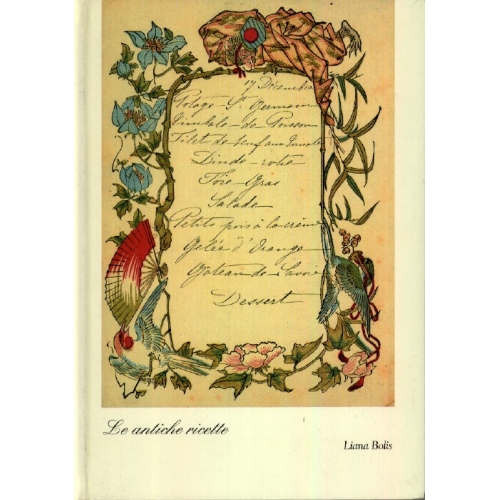 17 Décembre
Potage St Germain
Timbale de Poisson
Filet de beuf aux Tomates
Dinde rotie
Foie Gras
Salade
Petits pois à la crème
Gelée d'Orange
Gateau de Savoie
Dessert
Le antiche ricette
Liana Bolis